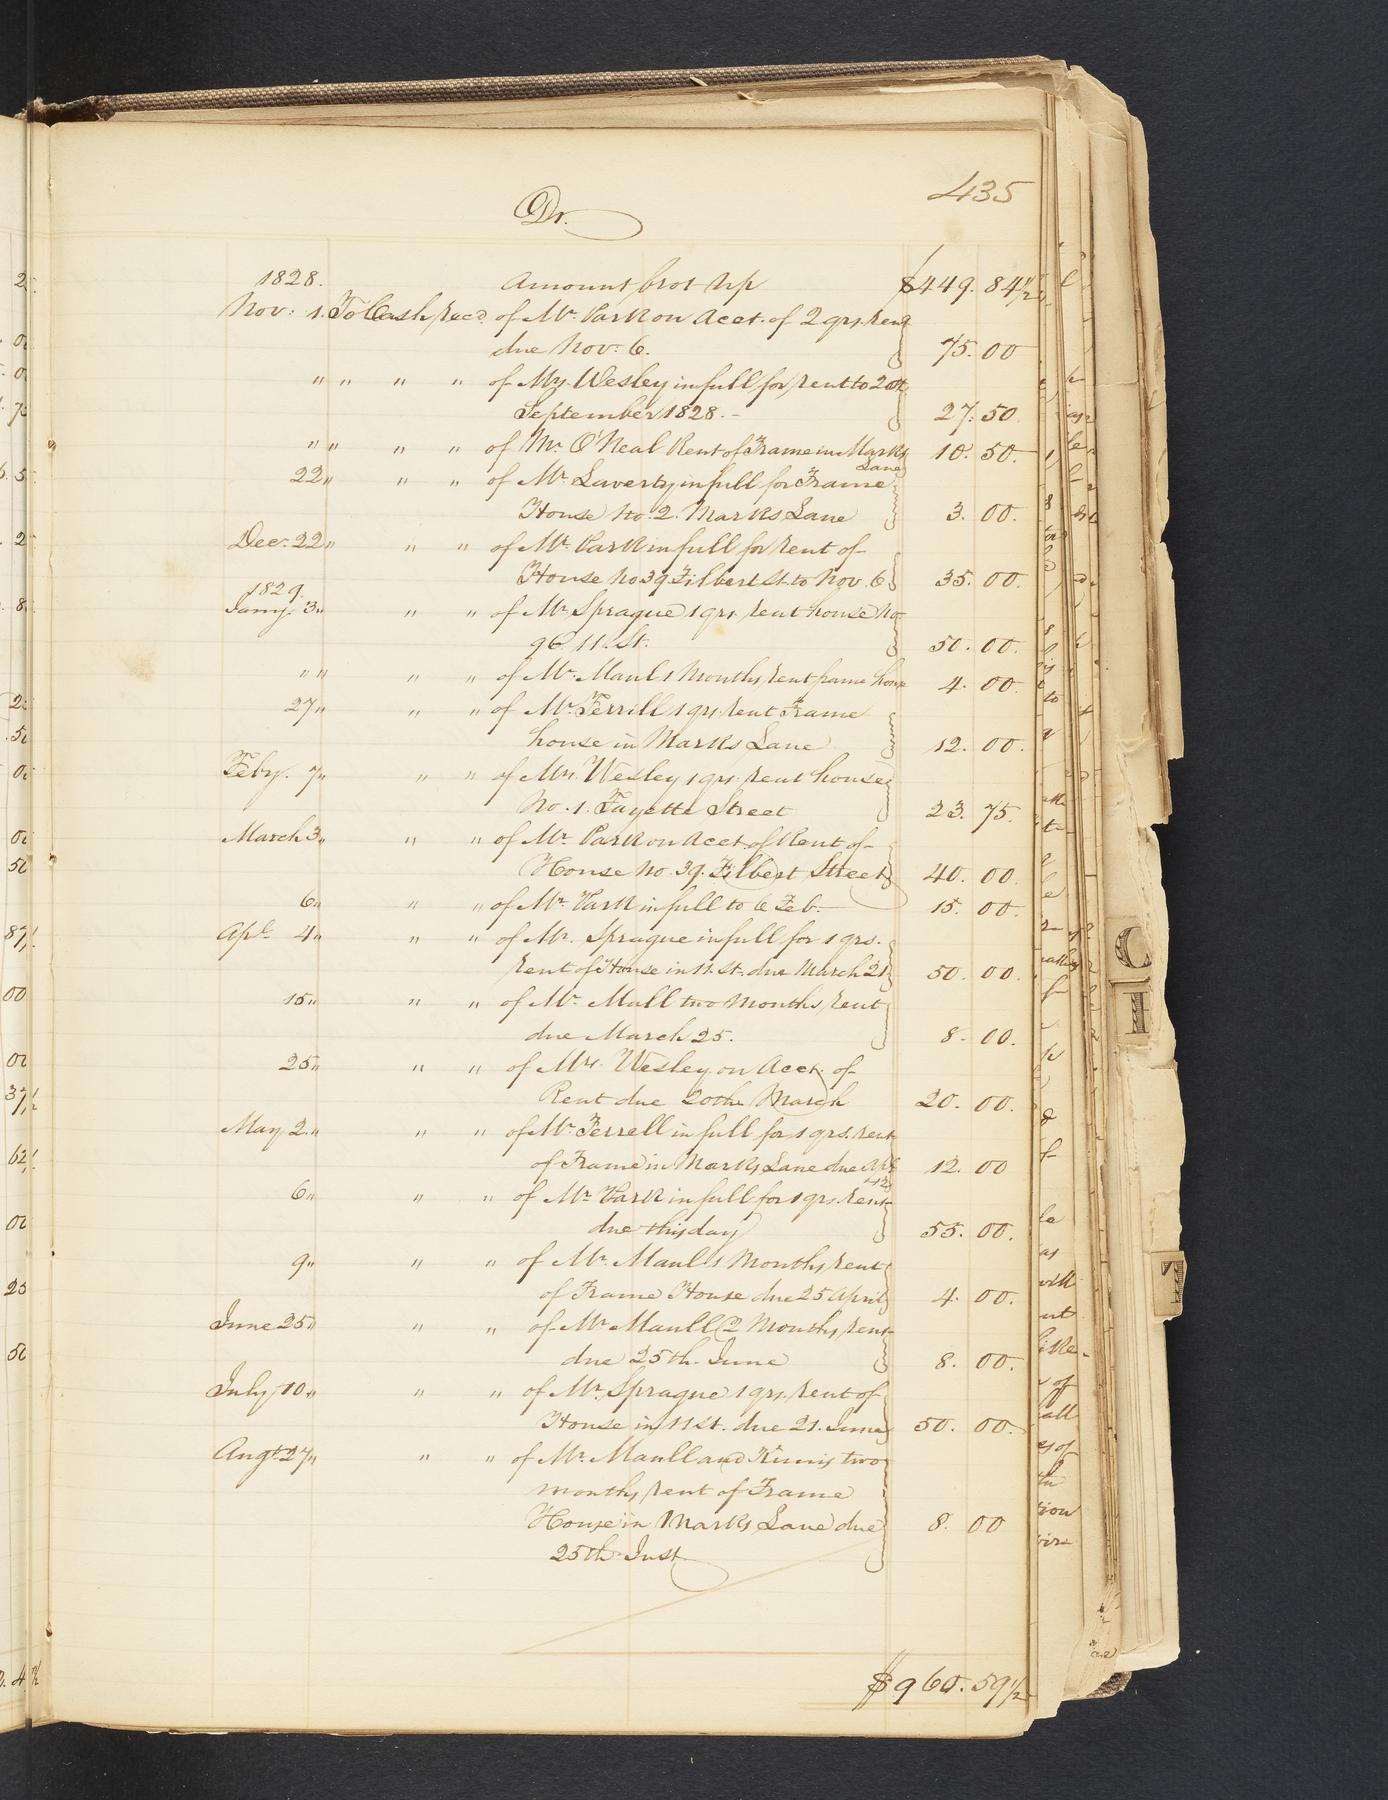 435
Dr.
1828. Amount brot up $449. 84 1/2
Nov: 1. To Cash Recd. of Mr. Park on Acct. of 2 qrs. Rent
due Nov: 6. 75. 00
" " " " of Mrs. Wesley in full for rent to 20th
September 1828. - 27. 50
" " " " of Mr. O'Neal Rent of Frame in Marks 10. 50.
Lane
22 " " " of Mr. Laverty in full for Frame
House No. 2. Marks Lane 3. 00.
Dec. 22 " " " of Mr. Park in full for Rent of
House No 39 Filbert St. to Nov. 6 35. 00.
1829.
Jany. 3 " " " of Mr. Sprague 1 qrs. rent house No
96 11. St. 50. 00.
" " " " of Mr. Maul 1 Months rent frame house 4. 00
27 " " " of Mr. Ferrill 1 qrs. rent Frame
house in Marks Lane 12. 00.
Feby. 7 " " " of Mrs. Wesley 1 qrs. rent house
No. 1. Fayette Street 23. 75.
March 3 " " " of Mr. Park on Acct. of Rent of
House No. 39. Filbert Street 40. 00
6 " " " of Mr. Park in full to 6 Feb. 15. 00.
Apl. 4 " " " of Mr. Sprague in full for 1 qrs.
rent of House in 11. St. due March 21 50. 00.
15 " " " of Mr. Mull two Months rent
due March 25. 8. 00.
25 " " " of Mrs. Wesley on Acct. of
Rent due 20th March 20. 00.
May 2. " " " of Mr. Ferrell in full for 1 qrs. rent
of Frame in Marks Lane due Apl 12. 00
6 " " " of Mr. Park in full for 1 qrs. rent
due this day 55. 00.
9 " " " of Mr. Maull 1 Months rent
of Frame House due 25 April 4. 00.
June 25 " " " of Mr. Maull (2 Months rent
due 25th June 8. 00.
July 10 " " " of Mr. Sprague 1 qrs. rent of
House in 11 St. due 21. June 50. 00.
Augt. 27 " " " of Mr. Maull and two
months rent of Frame
House in Marks Lane due 8. 00
25th Inst.
$960. 59 1/2